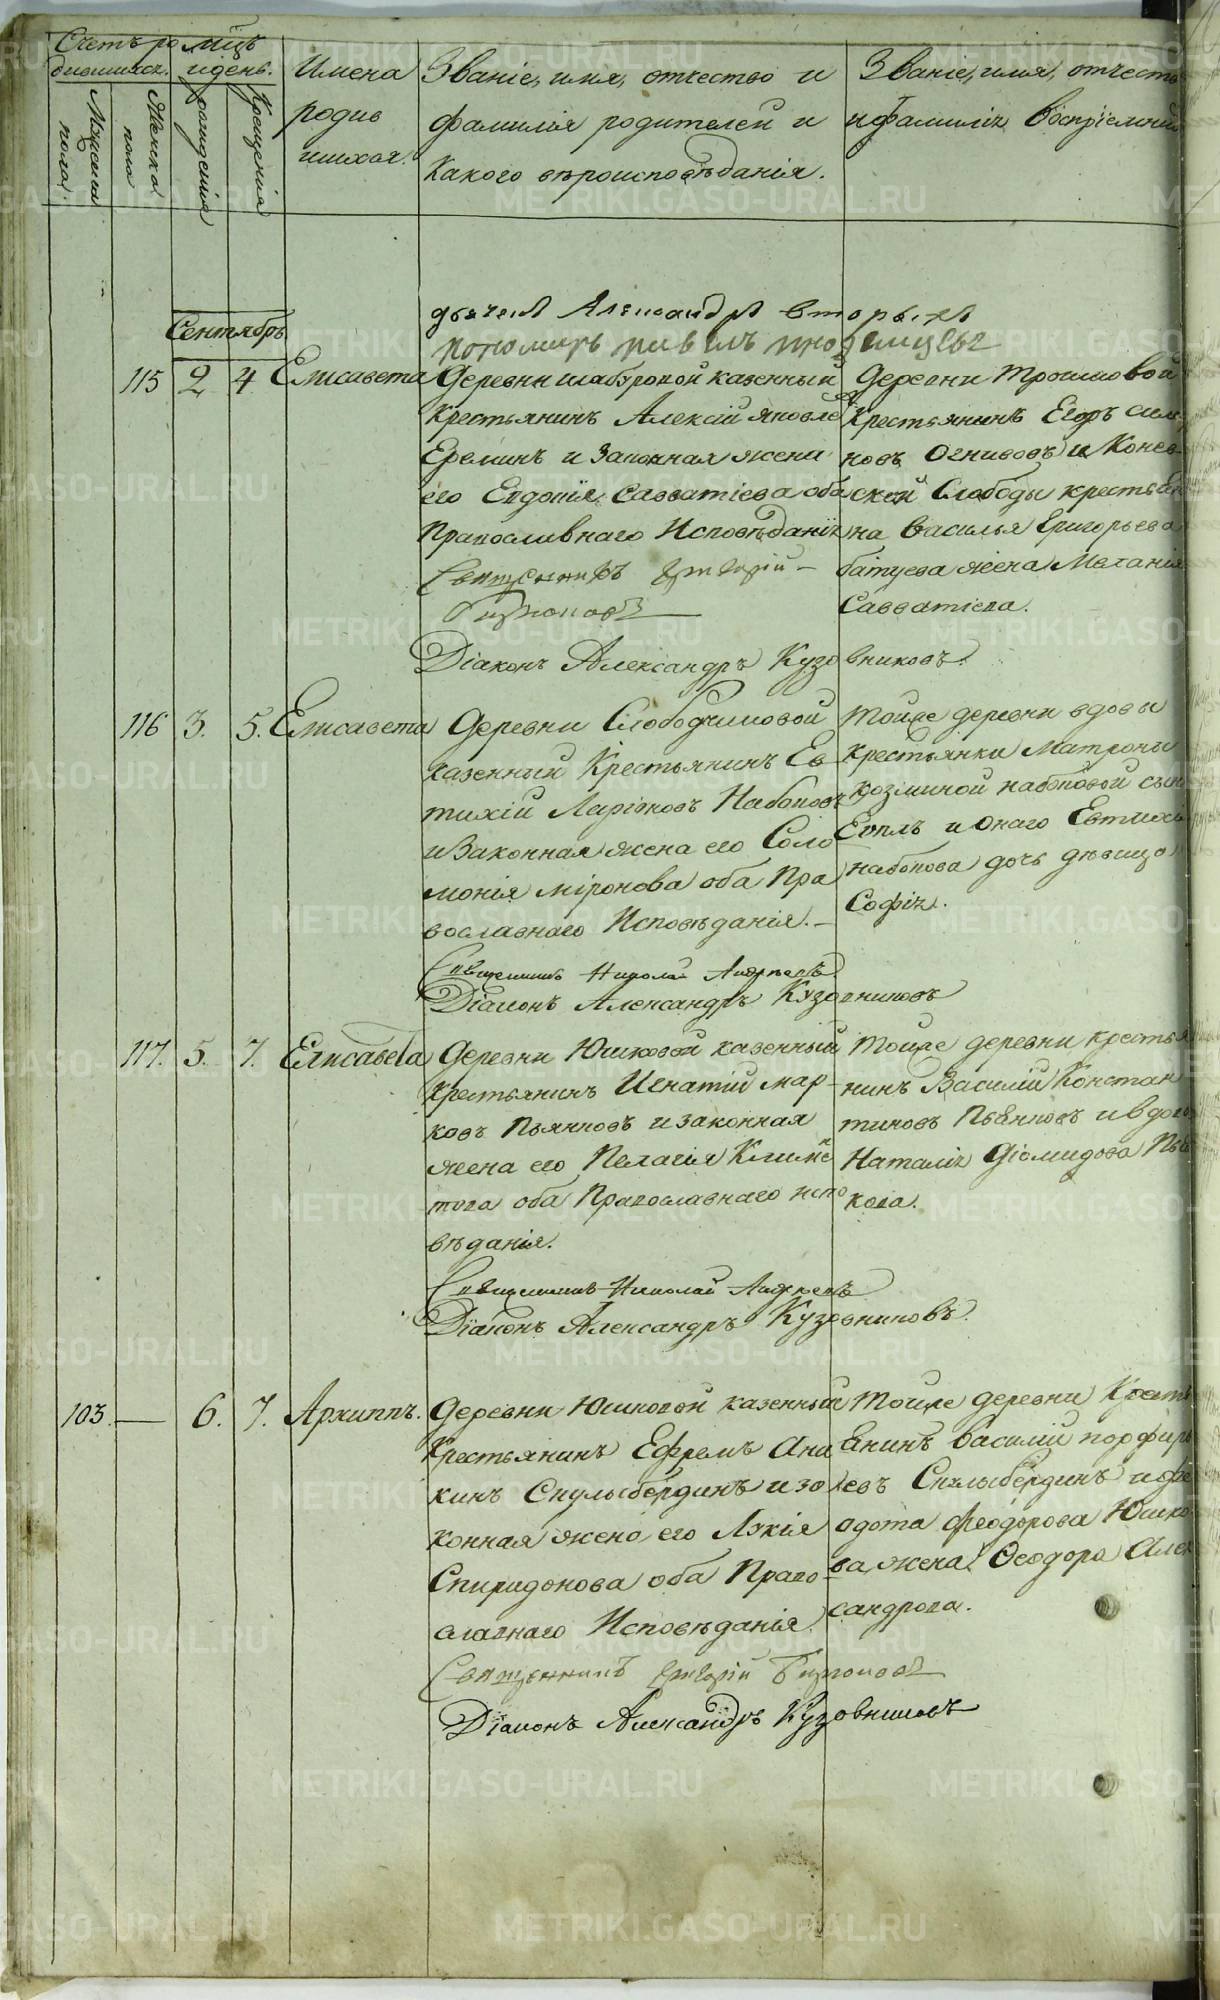 Счетъ ро
дившихся.
Мужска
пола.
Женска
пола
мцъ
и день.
рожденія
Крещенія
Имена
родив
шихся.
Званіе, имя, отчество и
фамилія родителей и
какого вѣроисповѣданія.
Званіе, имя, отчест
и фамилія воспріемни
дьячекъ Александръ вторыхъ
пономарь павелъ
Сентябрь
115 2 4 Елисавета
Деревни шабуровой казенный
Крестьянинъ Алексій яковле
Ереминъ и Законная жена
его Евдокія Савватіева оба
Православнаго Исповѣданія
Священникъ Григорій
Діаконъ Александръ Кузовниковъ.
Деревни Трошковой
Крестьянинъ Егоръ
новъ Огнивовъ и Конев
ской Слободы крестьян
на Василья Григорьева
жена Меланія
Савватіева.
116 3. 5. Елисавета
Деревни Слободчиковой
казенный Крестьянинъ Ев
тихій Ларіоновъ Набоковъ
и Законная жена его Соло
монія міронова оба Пра
вославнаго Исповѣданія.
Священникъ Николай Андреевъ
Діаконъ Александръ Кузовниковъ
Тойже деревни вдовы
крестьянки Матроны
козминой набоковой сын
Евплъ и онаго Евтихі
набокова дочь дѣвица
Софія.
117. 5. 7. Елисавета
Деревни Юшковой казенный
крестьянинъ Игнатій мар
ковъ Пьянковъ и законная
жена его Пелагія Климе
това оба Православнаго испо
вѣданія.
Священникъ Николай Андреевъ
Діаконъ Александръ Кузовниковъ.
Тойже деревни крестья
нинъ Василій Констан
тиновъ Пьянковъ и вдова
Наталія Діомидова Пья
кова.
103. — 6. 7. Архиппъ.
Деревни Юшковой казенный
Крестьянинъ Ефремъ Ана
кинъ Скулыбердинъ и за
конная жена его Лукія
Спиридонова оба Право
славнаго Исповѣданія.
Священникъ Григорій
Діаконъ Александръ Кузовниковъ
Тойже деревни Крестья
нинъ Василій порфирь
евъ Скулыбердинъ и фе
одота феодорова Юшко
ва жена Ѳеодора Алек
сандрова.
METRIKI.GASO-URAL.RU